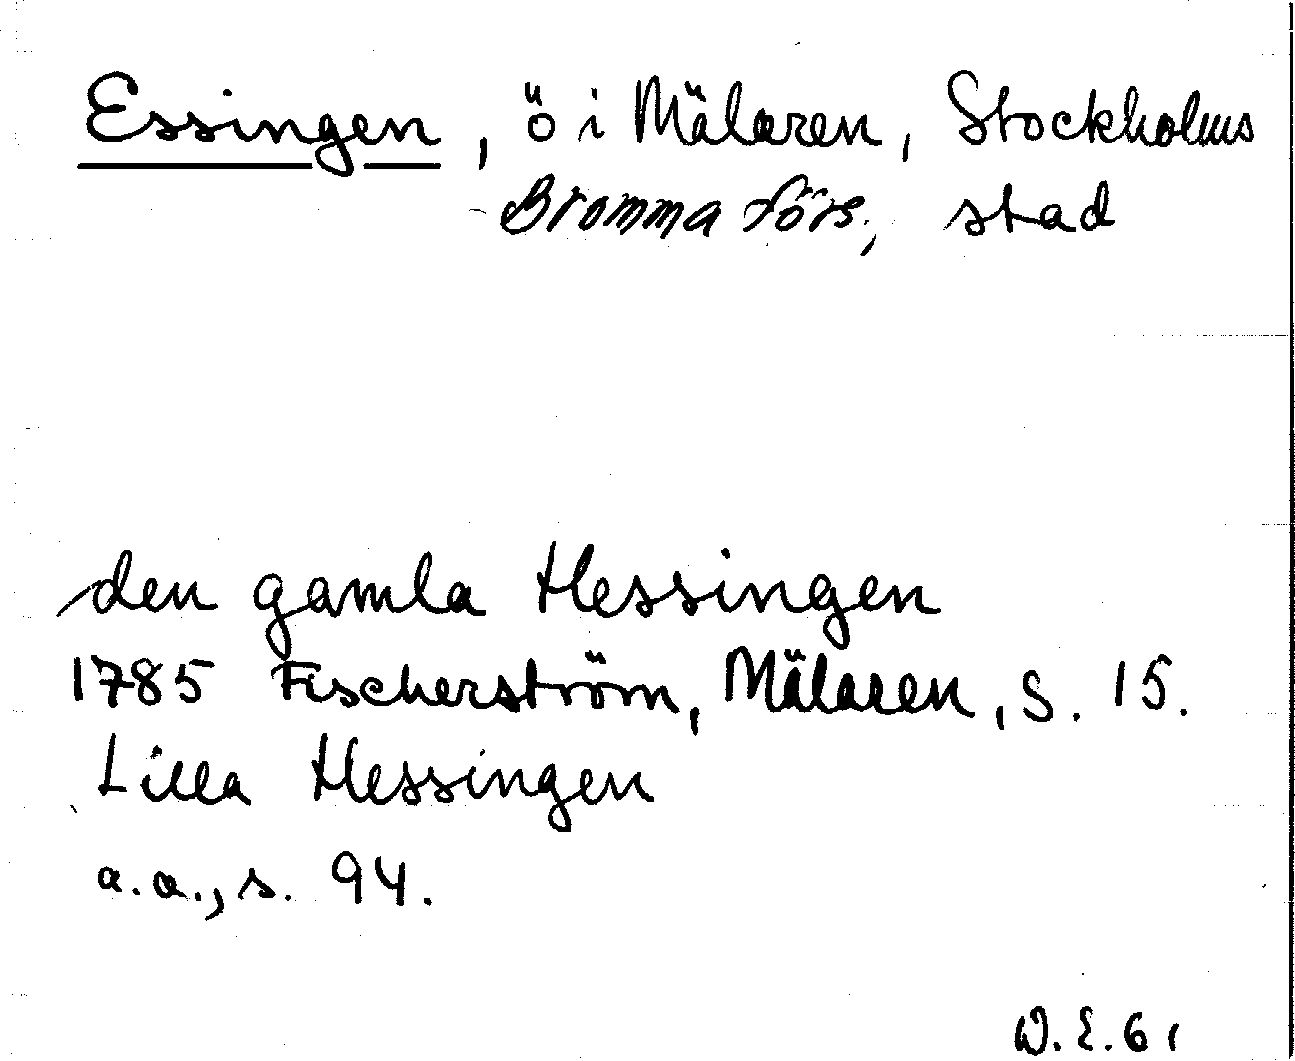 Essingen, ö i Mälaren, Stockholms
Bromma förs., stad
den gamla Hessingen
1785 Fischerström, Mälaren, S. 15.
Lilla Hessingen
a.a., s. 94.
W.E. 61